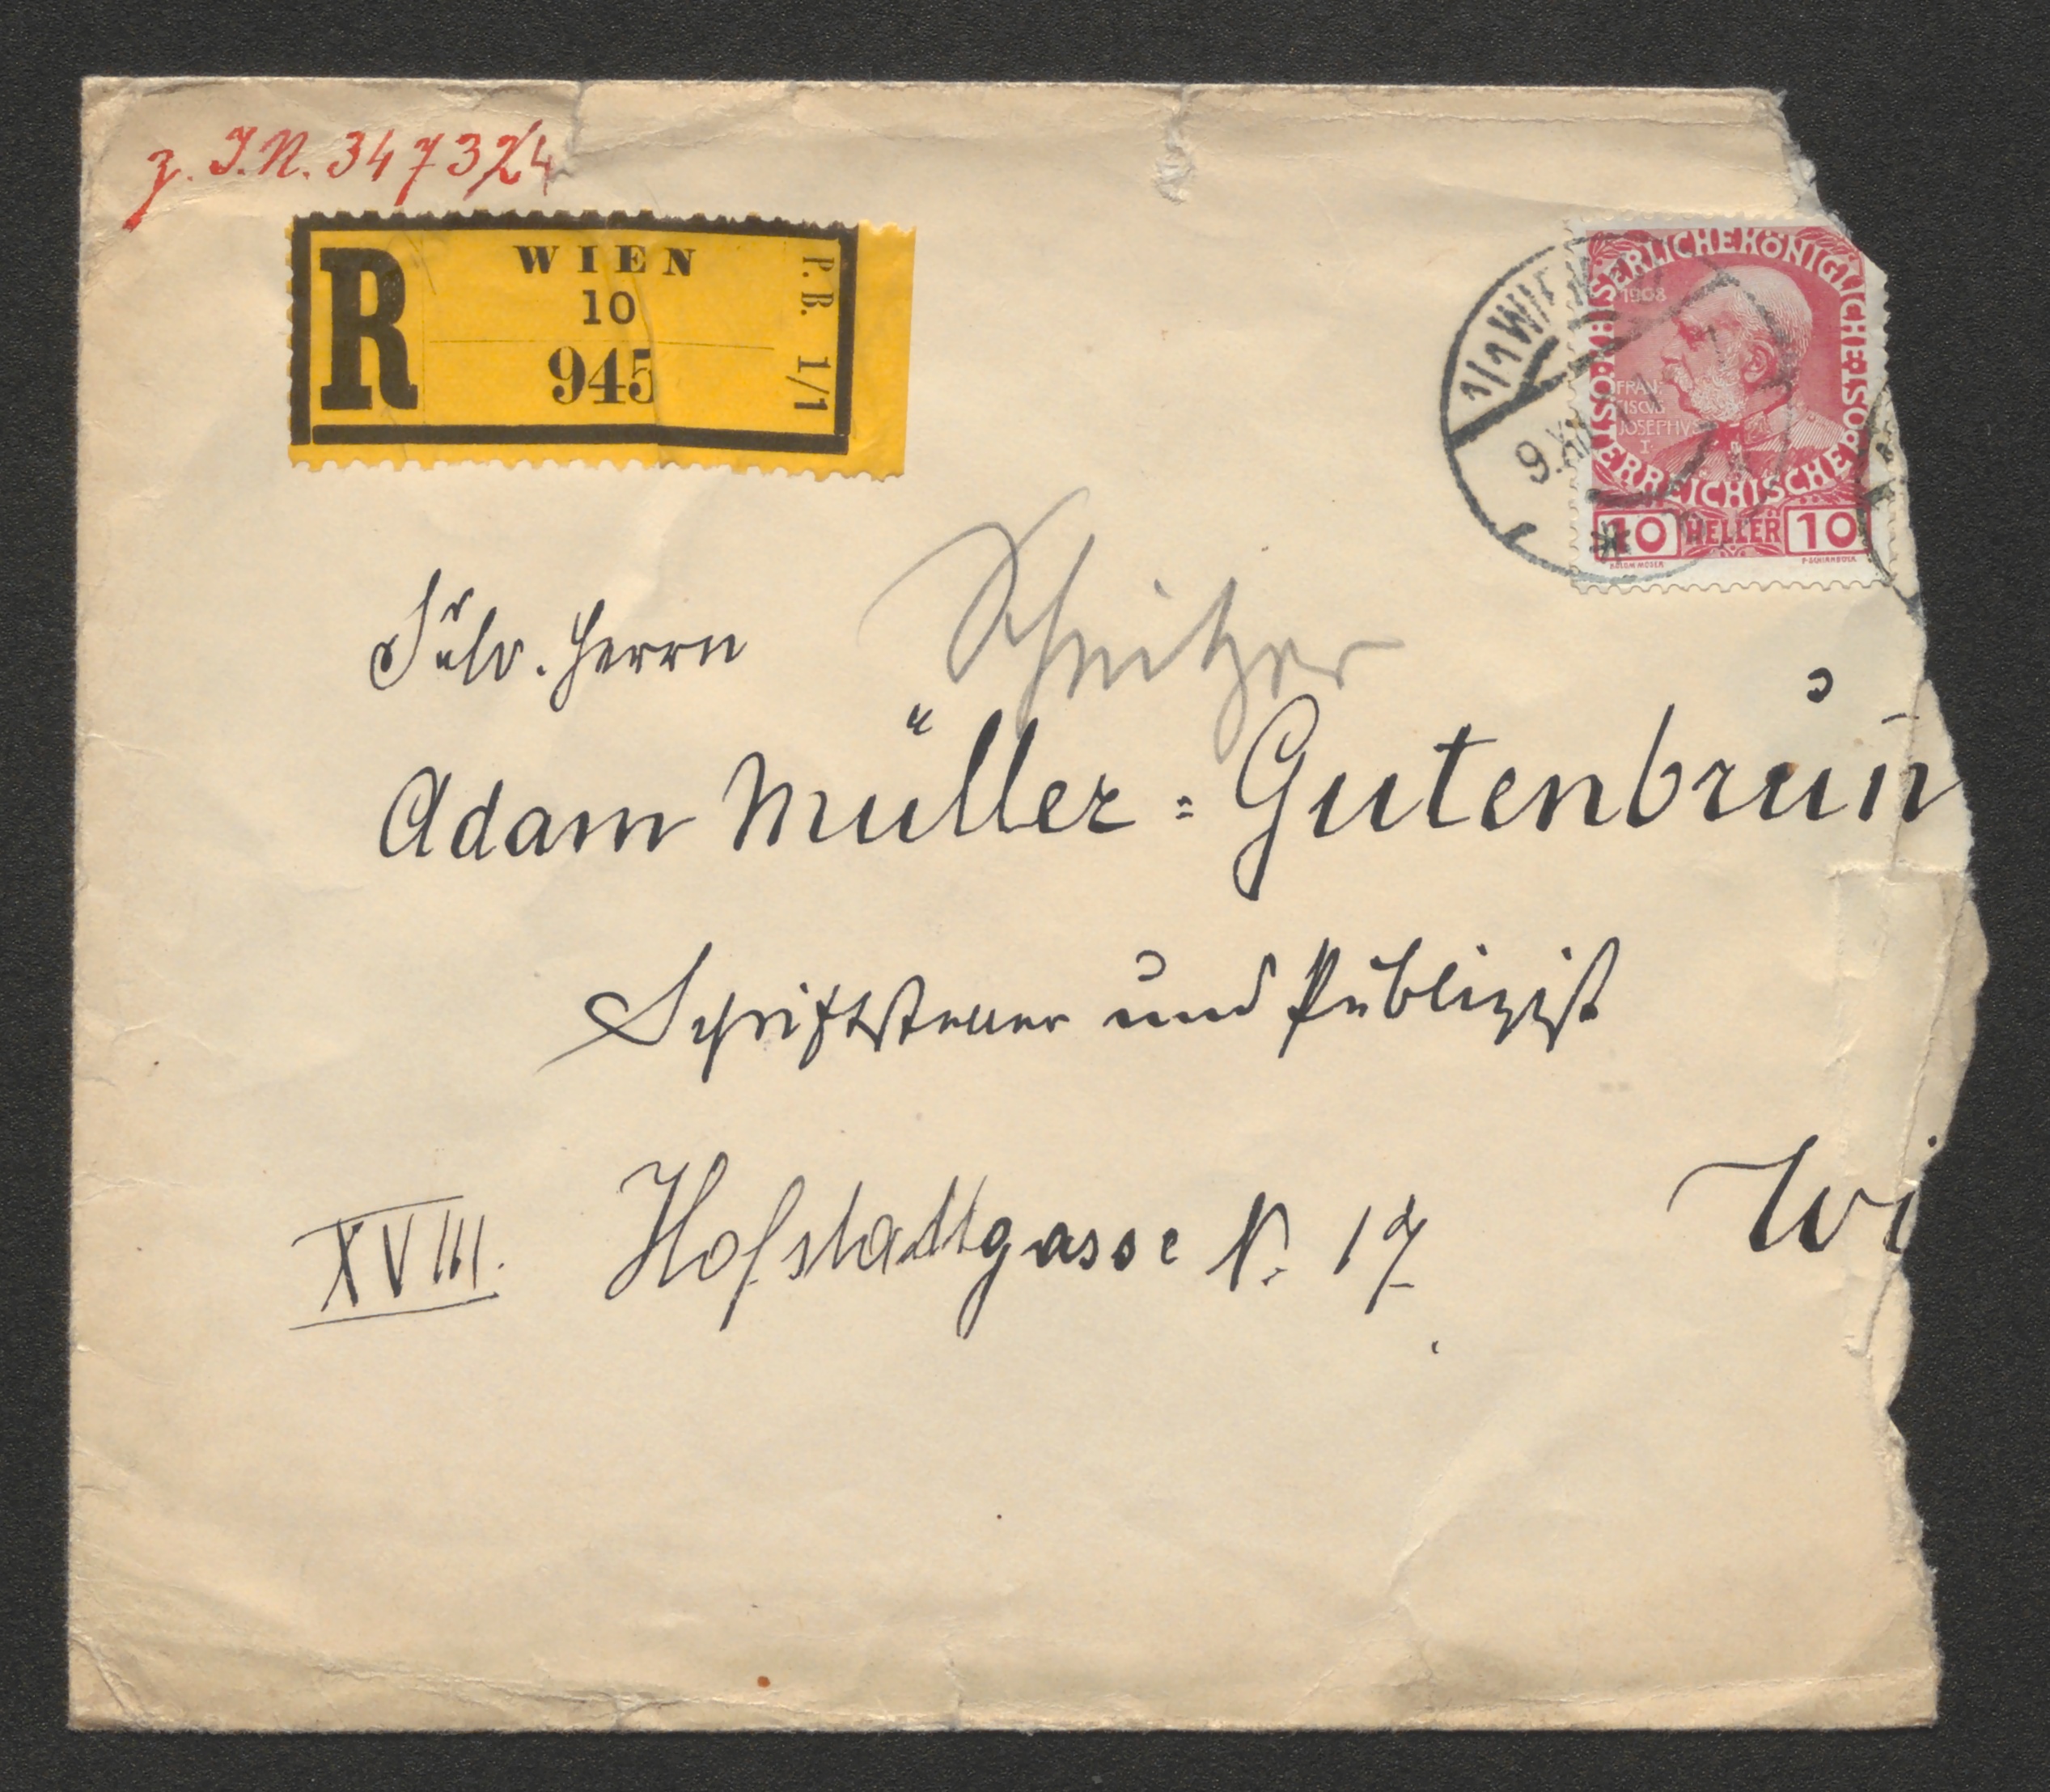 z. I.N. 347324
R
WIEN
10
945
P.B. 1/1
1/1 WIEN
9. XII
KAISERLICHE KÖNIGLICHE ÖSTERREICHISCHE
1908
FRAN-
CISCVS
JOSEPHVS
I
10 HELLER 10
KOLOM MOSER
F. SCHIRNBÖCK
Schnitzer
Herrn
Adam Müller=Gutenbrun̄
Schriftsteller und Publizist
XVIII. Hofstattgasse N. 17
Wi